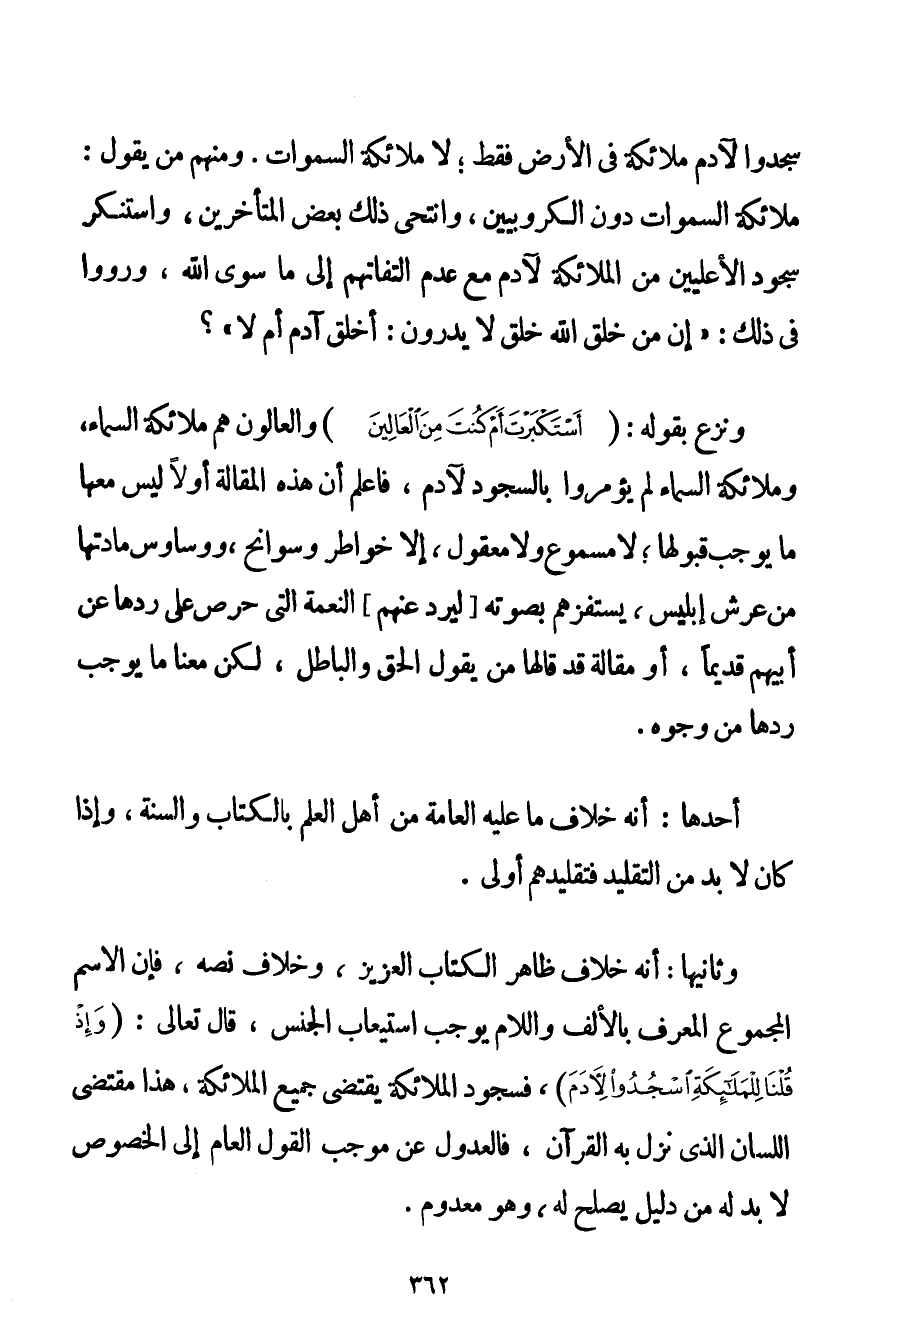 سجدوا لآدم ملائكة فى الأرض فقط ؛ لا ملائكة السموات . ومنهم من يقول :
ملائكة السموات دون الكروبيين ، وانتحى ذلك بعض المتأخرين ، واستنكر
سجود الأعليين من الملائكة لآدم مع عدم التفاتهم إلى ما سوى الله ، ورووا
فى ذلك : « إن من خلق الله خلق لا يدرون : أخلق آدم أم لا » ؟
ونزع بقوله : ( أَسْتَكْبَرْتَ أَمْ كُنتَ مِنَ ٱلْعَالِينَ ) والعالون هم ملائكة السماء،
وملائكة السماء لم يؤمروا بالسجود لآدم ، فاعلم أن هذه المقالة أولاً ليس معها
ما يوجب قبولها ؛ لا مسموع ولا معقول ، إلا خواطر وسوانح ، ووساوس مادتها
من عرش إبليس ، يستفزهم بصوته [ ليرد عنهم ] النعمة التى حرص على ردها عن
أبيهم قديماً ، أو مقالة قد قالها من يقول الحق والباطل ، لكن معنا ما يوجب
ردها من وجوه .
أحدها : أنه خلاف ما عليه العامة من أهل العلم بالكتاب والسنة ، وإذا
كان لا بد من التقليد فتقليدهم أولى .
وثانيها : أنه خلاف ظاهر الكتاب العزيز ، وخلاف نصه ، فإن الاسم
المجموع المعرف بالألف واللام يوجب استيعاب الجنس ، قال تعالى : ( وَإِذْ
قُلْنَا لِلْمَلَـٰٓئِكَةِ ٱسْجُدُوا۟ لِـَٔادَمَ ) ، فسجود الملائكة يقتضى جميع الملائكة ، هذا مقتضى
اللسان الذى نزل به القرآن ، فالعدول عن موجب القول العام إلى الخصوص
لا بد له من دليل يصلح له ، وهو معدوم .
٣٦٢